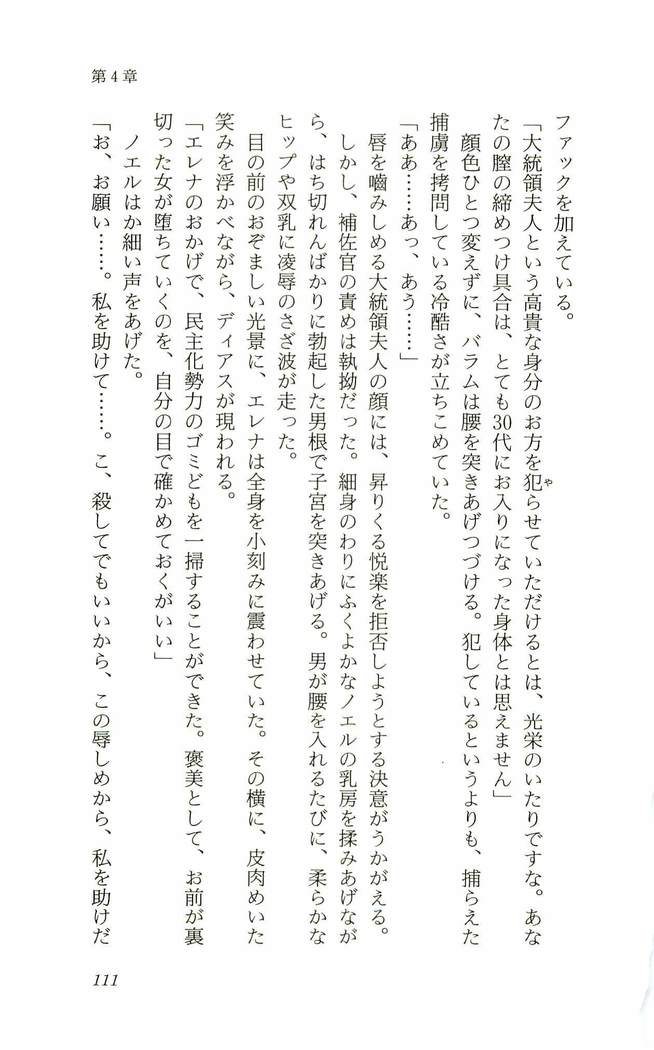 第4章
ファックを加えている。
「大統領夫人という高貴な身分のお方を犯らせていただけるとは、光栄のいたりですな。あな
や
たの膣の締めつけ具合は、とても30代にお入りになった身体とは思えません」
顔色ひとつ変えずに、バラムは腰を突きあげつづける。犯しているというよりも、捕らえた
捕虜を拷問している冷酷さが立ちこめていた。
「ああ……あっ、あう……」
唇を嚙みしめる大統領夫人の顔には、昇りくる悦楽を拒否しようとする決意がうかがえる。
しかし、補佐官の責めは執拗だった。細身のわりにふくよかなノエルの乳房を揉みあげなが
ら、はち切れんばかりに勃起した男根で子宮を突きあげる。男が腰を入れるたびに、柔らかな
ヒップや双乳に凌辱のさざ波が走った。
目の前のおぞましい光景に、エレナは全身を小刻みに震わせていた。その横に、皮肉めいた
笑みを浮かべながら、ディアスが現われる。
「エレナのおかげで、民主化勢力のゴミどもを一掃することができた。褒美として、お前が裏
切った女が堕ちていくのを、自分の目で確かめておくがいい」
ノエルはか細い声をあげた。
「お、お願い……。私を助けて……。こ、殺してでもいいから、この辱しめから、私を助けだ
111